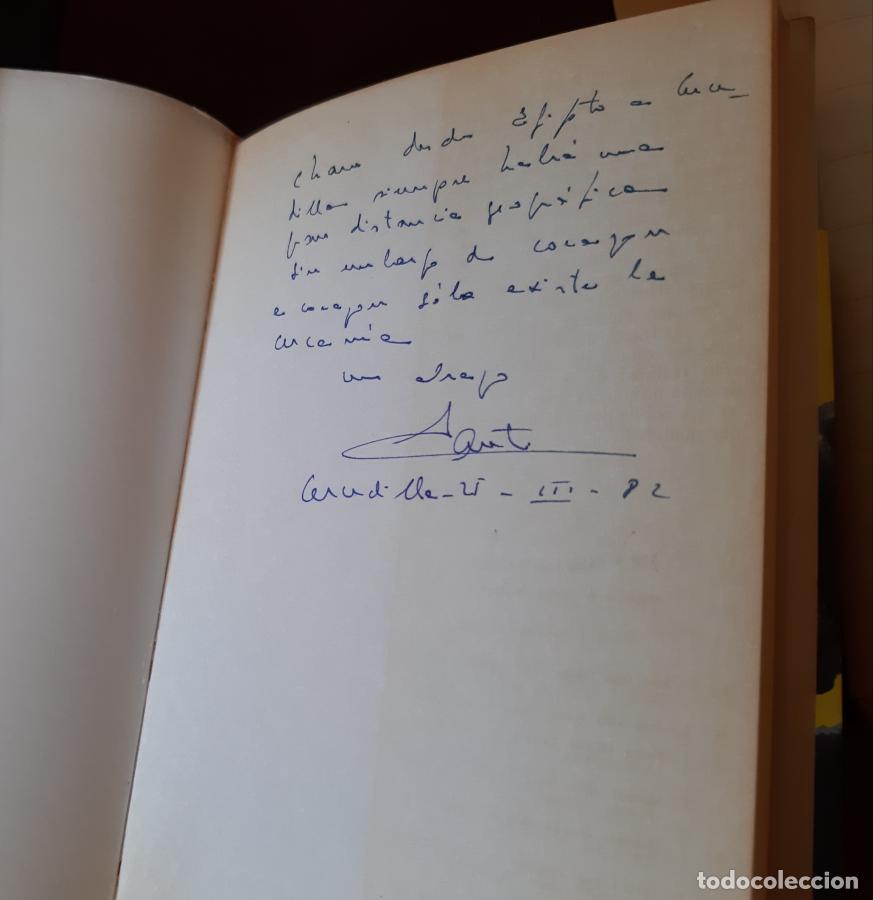 Charo desde Egipto a Cerce-
dilla siempre habrá una
gran distancia geográfica
sin embargo de corazón
a corazón sólo existe la
cercanía
un abrazo
Santi
Cercedilla - - III - 82
todocoleccion